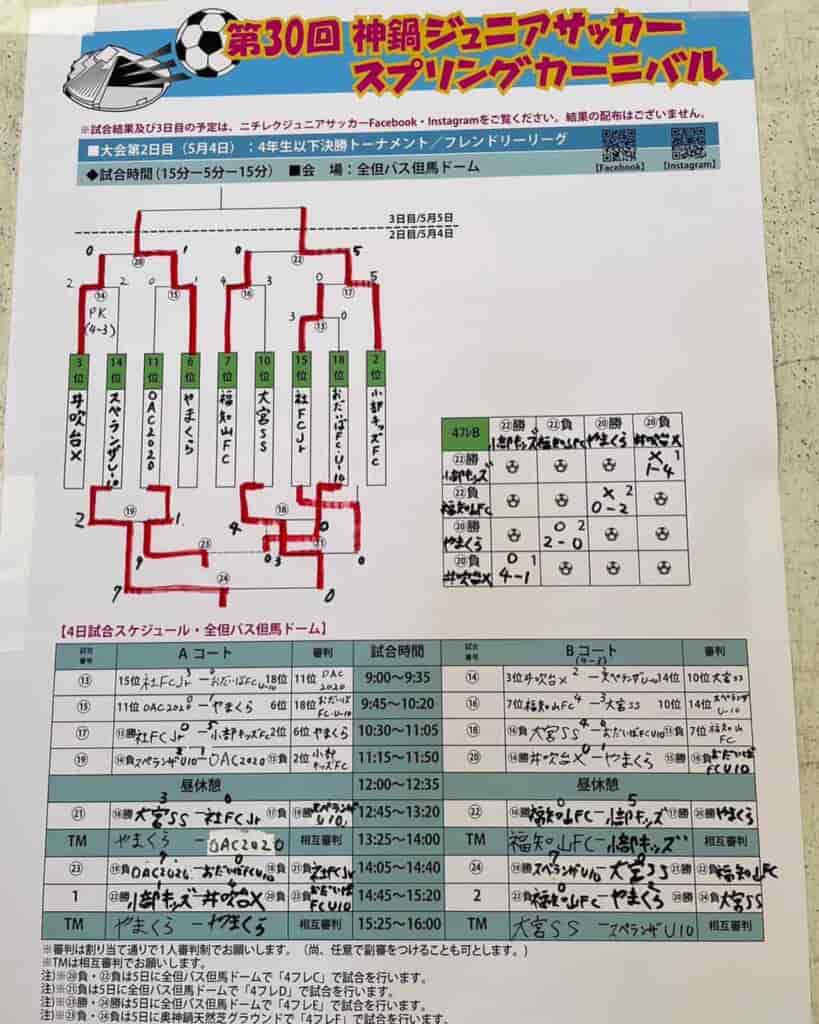 第30回 神鍋ジュニアサッカー
スプリングカーニバル
※試合結果及び3日目の予定は、ニチレクジュニアサッカーFacebook・Instagramをご覧ください。結果の配布はございません。
■大会第2日目（5月4日）：4年生以下決勝トーナメント／フレンドリーリーグ
◆試合時間（15分ー5分ー15分） ■会 場：全但バス但馬ドーム
【Facebook】 【Instagram】
3日目/5月5日
2日目/5月4日
0 ⑳ 1 0 ㉒ 5
2 ⑭ 2 0 ⑮ 1 4 ⑯ 3 0 ⑰ 5
PK
(4-3)
3 ⑬ 0
3位 14位 11位 6位 7位 10位 15位 18位 2位
井吹台X スペランザU-10 OAC2020 やまくら 福知山FC 大宮SS 社FCJr おだいばFC・U-10 小部キッズFC
2 ⑲ 1 4 ⑱ 0
㉓ 0 3 ㉑ 0
㉔ 0
4フレB ㉒勝 小部キッズ ㉒負 福知山FC ⑳勝 やまくら ⑳負 井吹台X
㉒勝 小部キッズ × 1 1-4
㉒負 福知山FC × 2 0-2
⑳勝 やまくら 0 2 2-0
⑳負 井吹台X 0 1 4-1
【4日試合スケジュール・全但バス但馬ドーム】
試合番号 Aコート 審判 試合時間 試合番号 Bコート 審判
⑬ 15位 社FCJr 3-0 おだいばFCU-10 18位 11位 OAC2020 9:00～9:35 ⑭ 3位 井吹台X 2 (4-3) 2 スペランザU-10 14位 10位 大宮SS
⑮ 11位 OAC2020 0-1 やまくら 6位 18位 おだいばFC・U-10 9:45～10:20 ⑯ 7位 福知山FC 4-3 大宮SS 10位 14位 スペランザU-10
⑰ ⑬勝 社FCJr 0-5 小部キッズFC 2位 6位 やまくら 10:30～11:05 ⑱ ⑯負 大宮SS 4-0 おだいばFCU10 ⑬負 7位 福知山FC
⑲ ⑭負 スペランザU10 2-1 OAC2020 ⑮負 2位 小部キッズFC 11:15～11:50 ⑳ ⑭勝 井吹台X 0-1 やまくら ⑮勝 おだいばFCU10
昼休憩 12:00～12:35 昼休憩
㉑ ⑱勝 大宮SS 3-0 社FCJr ⑰負 スペランザU10 12:45～13:20 ㉒ ⑯勝 福知山FC 0-5 小部キッズ ⑰勝 ⑳勝 やまくら
TM やまくら - OAC2020 相互審判 13:25～14:00 TM 福知山FC - 小部キッズ 相互審判
㉓ ⑲負 OAC2020 - 0 おだいばFCU10 ⑱負 ㉑負 社FCJr 14:05～14:40 ㉔ ⑲勝 スペランザU10 - 0 大宮SS ㉑勝 ㉒負 福知山FC
1 ㉒勝 小部キッズ 1-4 井吹台X ⑳負 ㉓負 おだいばFCU10 14:45～15:20 2 ㉒負 福知山FC 0-2 やまくら ⑳勝 ㉔負 大宮SS
TM やまくら - やまくら 相互審判 15:25～16:00 TM 大宮SS - スペランザU10 相互審判
※審判は割り当て通りで1人審判制でお願いします。（尚、任意で副審をつけることも可とします。）
※TMは相互審判でお願いします。
注)※⑳負・㉒負は5日に全但バス但馬ドームで「4フレC」で試合を行います。
注)※㉑負は5日に全但バス但馬ドームで「4フレD」で試合を行います。
注)※㉓勝・㉔勝は5日に全但バス但馬ドームで「4フレE」で試合を行います。
注)※㉓負・㉔負は5日に奥神鍋天然芝グラウンドで「4フレF」で試合を行います。